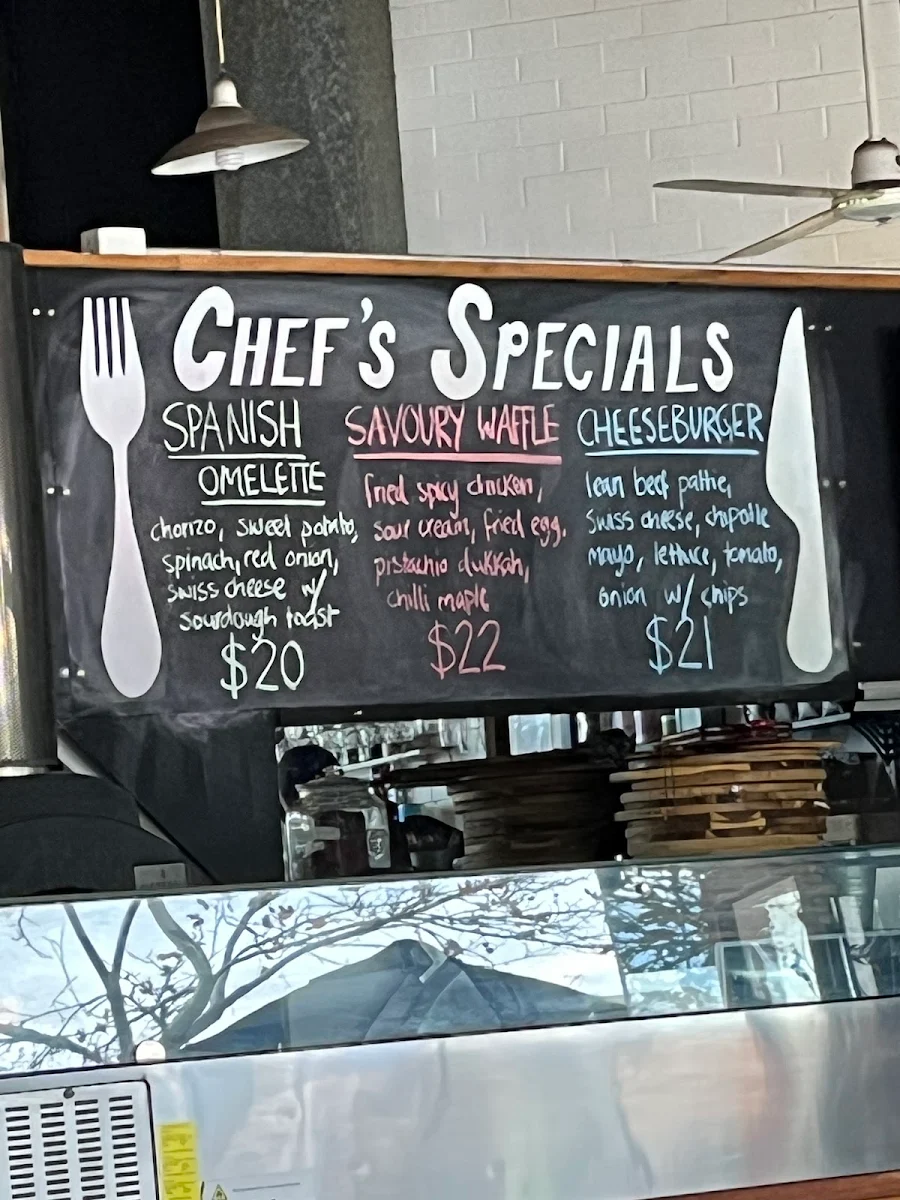 CHEF'S SPECIALS
SPANISH
OMELETTE
chorizo, sweet potato,
spinach, red onion,
swiss cheese w/
sourdough toast
$20
SAVOURY WAFFLE
fried spicy chicken,
sour cream, fried egg,
pistachio dukkah,
chilli maple
$22
CHEESEBURGER
lean beef pattie,
swiss cheese, chipotle
mayo, lettuce, tomato,
onion w/ chips
$21